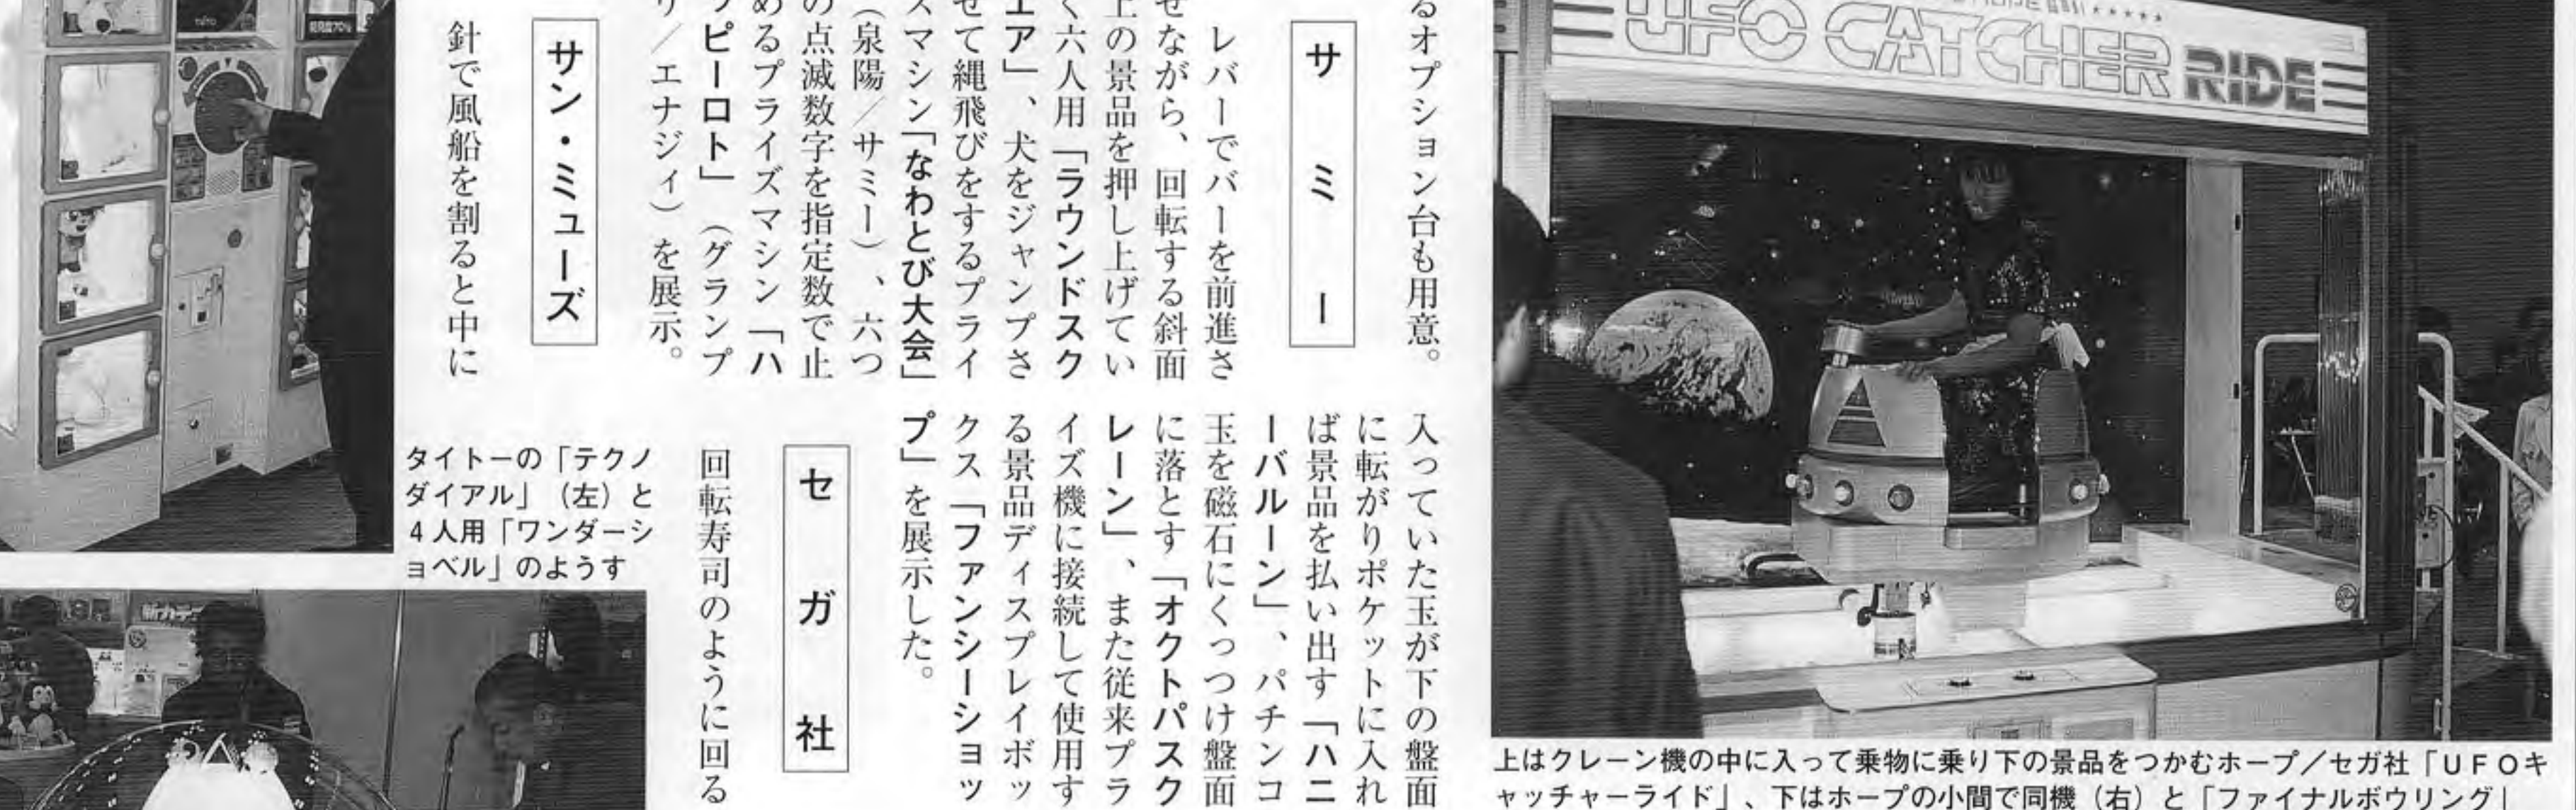 るオプション台も用意。
サミー
レバーでバーを前進さ
せながら、回転する斜面
上の景品を押し上げてい
く六人用「ラウンドスク
エア」、犬をジャンプさ
せて縄飛びをするプライ
スマシン「なわとび大会」
(泉陽/サミー)、六つ
の点滅数字を指定数で止
めるプライズマシン「ハ
ッピーロト」(グランプ
リ/エナジィ)を展示。
サン・ミューズ
針で風船を割ると中に
入っていた玉が下の盤面
に転がりポケットに入れ
ば景品を払い出す「ハニ
ーバルーン」、パチンコ
玉を磁石にくっつけ盤面
に落とす「オクトパスク
レーン」、また従来プラ
イズ機に接続して使用す
る景品ディスプレイボッ
クス「ファンシーショッ
プ」を展示した。
セガ社
回転寿司のように回る
タイトーの「テクノ
ダイアル」(左)と
4人用「ワンダーシ
ョベル」のようす
UFO CATCHER RIDE
上はクレーン機の中に入って乗物に乗り下の景品をつかむホープ/セガ社「UFOキ
ャッチャーライド」、下はホープの小間で同機(右)と「ファイナルボウリング」